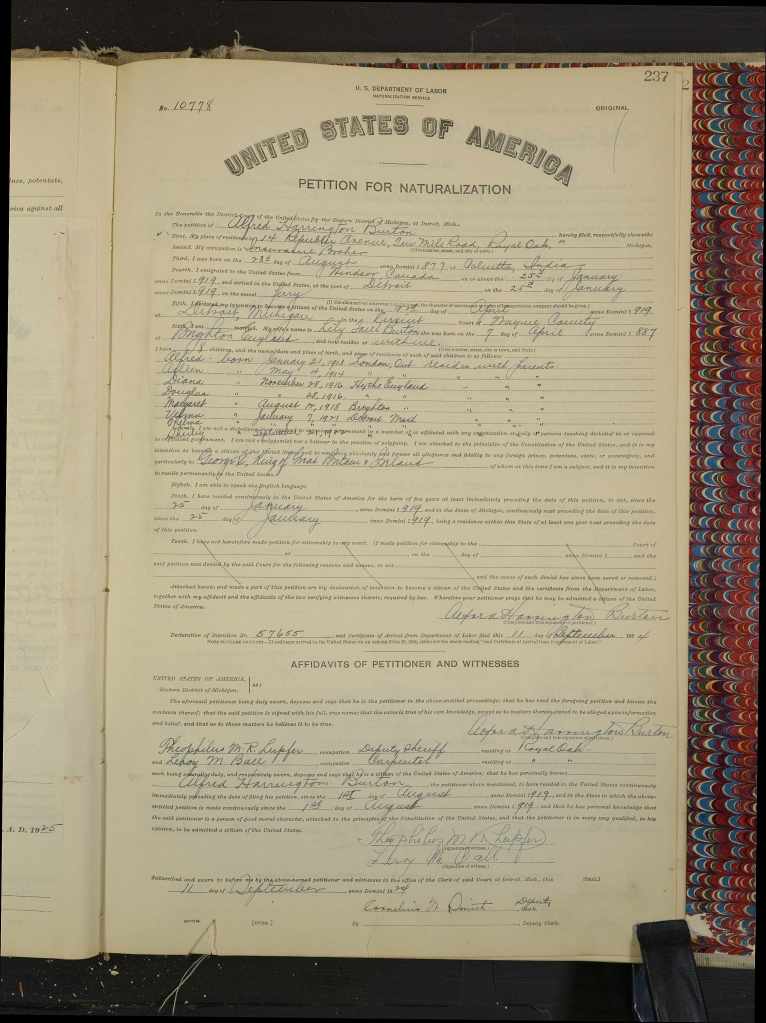 237
2
U. S. DEPARTMENT OF LABOR
NATURALIZATION SERVICE
No. 10778
ORIGINAL
UNITED STATES OF AMERICA
PETITION FOR NATURALIZATION
To the Honorable the District Court of the United States for the Eastern District of Michigan, at Detroit, Mich.
The petition of Alfred Harrington Burton hereby filed, respectfully showeth:
First. My place of residence is 14 Republic Avenue, Ten Mile Road, Royal Oak, " Michigan.
Second. My occupation is Insurance Broker
Third. I was born on the 28th day of August anno Domini 1877 in Calcutta, India
Fourth. I emigrated to the United States from Windsor Canada on or about the 25th day of January
anno Domini 1919, and arrived in the United States, at the port of Detroit on the 25 day of January
anno Domini 1919, on the vessel ferry
Fifth. I declared my intention to become a citizen of the United States on the day of April anno Domini 1919
at Detroit Michigan in the Circuit Court of Wayne County
Sixth. I am married. My wife's name is Lily Burton she was born on the 7 day of April anno Domini 1887
at Brighton England and now resides at with me.
I have children, and the name, date and place of birth, and place of residence of each of said children is as follows:
Alfred born January 21, 1913 London, Ont resides with parents
Aileen " May 4, 1914 " " " " "
Diana " November 28, 1916 Hythe England " " "
Douglas " " 28, 1916 " " " "
Margaret " August 17, 1918 Brighton " " " "
Velma " January 7, 1921 Detroit Mich " " "
Shirley " September 21, 1922 " " " " "
George V, King of Great Britain & Ireland of whom at this time I am a subject, and it is my intention
to reside permanently in the United States.
Eighth. I am able to speak the English language.
Ninth. I have resided continuously in the United States of America for the term of five years at least immediately preceding the date of this petition, to wit, since the
25 day of January, anno Domini 1919, and in the State of Michigan, continuously next preceding the date of this petition,
since the 25 day of January, anno Domini 1919, being a residence within this State of at least one year next preceding the date
of this petition.
Tenth. I have not heretofore made petition for citizenship to any court. (I made petition for citizenship to the Court of
at on the day of anno Domini 1 and the
said petition was denied by the said Court for the following reasons and causes, to wit
and the cause of such denial has since been cured or removed.)
Attached hereto and made a part of this petition are my declaration of intention to become a citizen of the United States and the certificate from the Department of Labor,
together with my affidavit and the affidavits of the two verifying witnesses thereto, required by law. Wherefore your petitioner prays that he may be admitted a citizen of the United
States of America.
Alfred Harrington Burton
Declaration of Intention No. 57655 and Certificate of Arrival from Department of Labor filed this 11 day of September 1924
AFFIDAVITS OF PETITIONER AND WITNESSES
UNITED STATES OF AMERICA,
Eastern District of Michigan,
ss:
The aforesaid petitioner being duly sworn, deposes and says that he is the petitioner in the above-entitled proceedings; that he has read the foregoing petition and knows the
contents thereof; that the said petition is signed with his full, true name; that the same is true of his own knowledge, except as to matters therein stated to be alleged upon information
and belief, and that as to those matters he believes it to be true.
Alfred Harrington Burton
Theophilus M. R. Leipfer occupation Deputy Sheriff residing at Royal Oak
and Leroy M Ball occupation Carpenter residing at " "
each being severally, duly, and respectively sworn, deposes and says that he is a citizen of the United States of America; that he has personally known
Alfred Harrington Burton the petitioner above mentioned, to have resided in the United States continuously
immediately preceding the date of filing his petition, since the 1st day of August anno Domini 1919, and in the State in which the above-
entitled petition is made continuously since the 1st day of August anno Domini 1919, and that he has personal knowledge that
the said petitioner is a person of good moral character, attached to the principles of the Constitution of the United States, and that the petitioner is in every way qualified, in his
opinion, to be admitted a citizen of the United States.
Leroy M. Ball
Subscribed and sworn to before me by the above-named petitioner and witnesses in the office of the Clerk of said Court at Detroit, Mich., this
11 day of September anno Domini 1924
[SEAL.]
Deputy Clerk
By , Deputy Clerk.
A. D. 1925